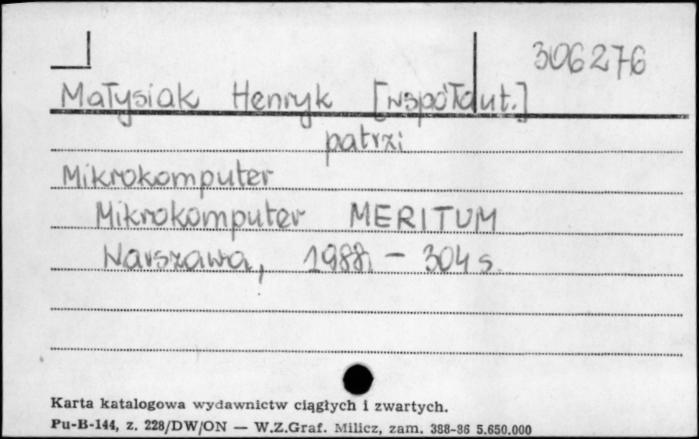 306276
Małysiak Henryk [współaut.]
patrzi
Mikrokomputer
Mikrokomputer MERITUM
Warszawa, 1988. – 304 s.
Karta katalogowa wydawnictw ciągłych i zwartych.
Pu-B-144, z. 228/DW/ON — W.Z.Graf. Milicz, zam. 388-86 5.650.000